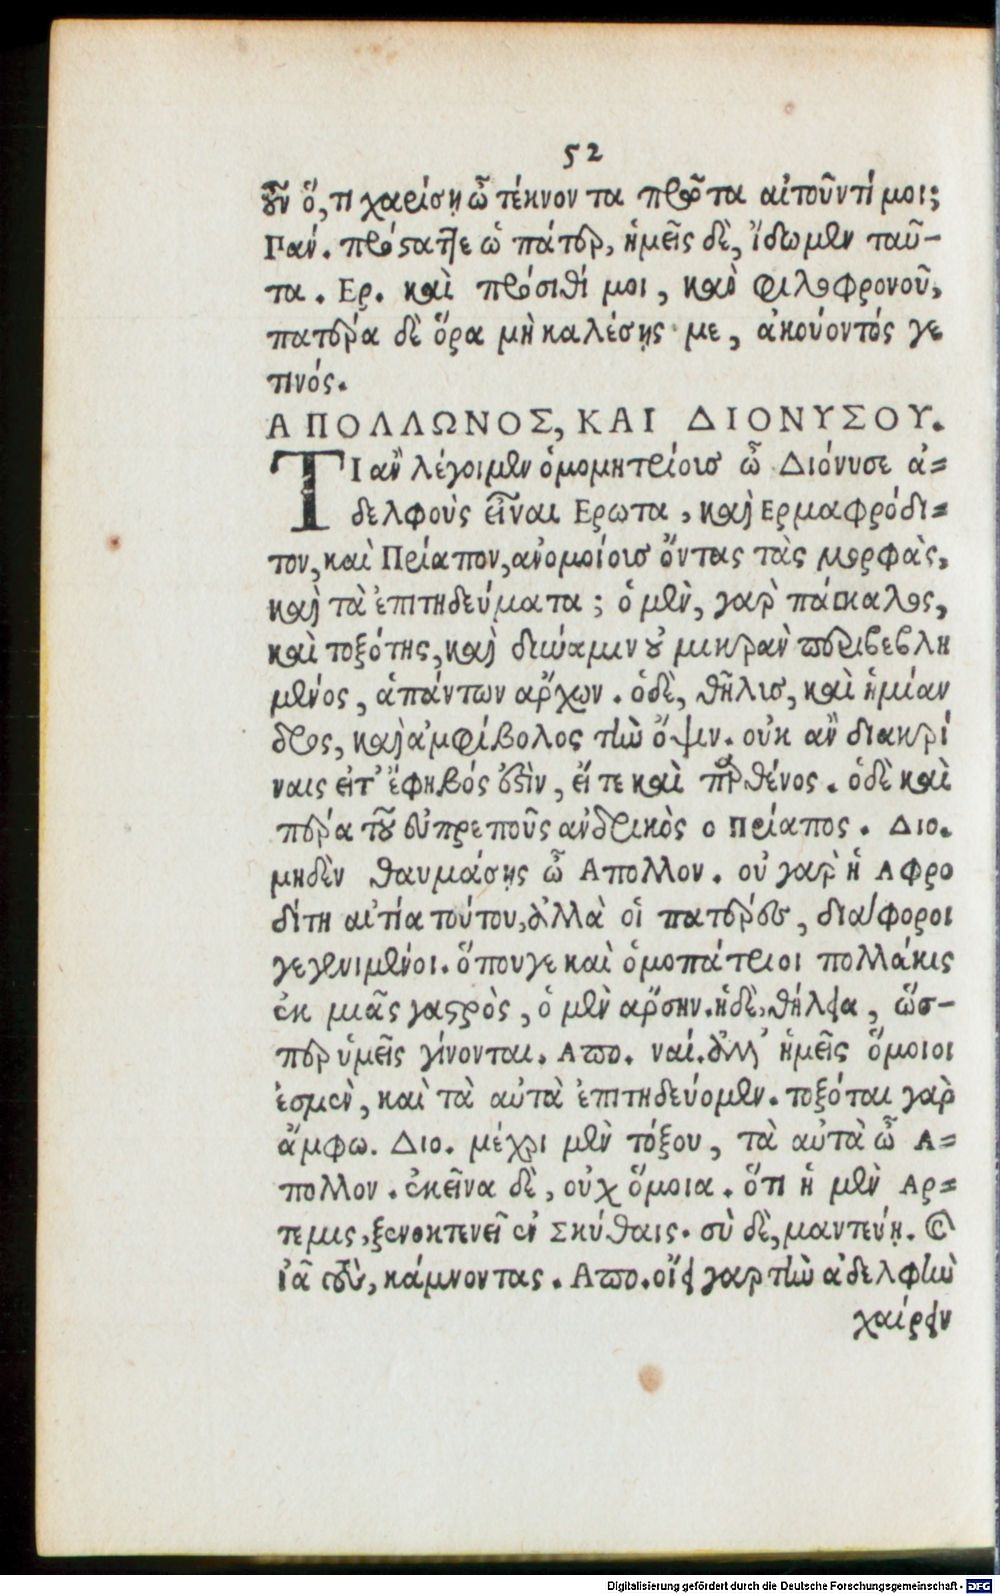 52
οὖν ὅ,τι χαρίσῃ ὦ τέκνον τα πρῶτα αἰτοῦντί μοι;
Παν. πρόσταττε ὠ πάτερ, ἡμεῖς δὲ, ἴδωμεν ταῦ-
τα. Ερ. καὶ πρόσιθί μοι, καὶ φιλοφρονοῦ,
πατέρα δὲ ὅρα μὴ καλέσῃς με, ἀκούοντός γε
τινός.
ΑΠΟΛΛΩΝΟΣ, ΚΑΙ ΔΙΟΝΥΣΟΥ.
ΤΙ αν̓ λέγοιμεν ὁμομητρίους ὦ Διόνυσε ἀ=
δελφοὺς εἶναι Ερωτα, καὶ Ερμαφρόδι=
τον, καὶ Πρίαπον, ανομοίους ὄντας τὰς μορφὰς,
καὶ τὰ ἐπιτηδεύματα; ὁ μὲν, γαρ̀ πάγκαλος,
καὶ τοξότης, καὶ δύναμιν οὐ μικραν̀ περιβεβλη
μένος, ἁπάντων αῤ́χων. ὁδὲ, θῆλυς, καὶ ἡμίαν
δρος, καὶ ἀμφίβολος τὴν ὄψιν. οὐκ αν̓̀ διακρί
ναις εἰτ' ἔφηβός ἐστὶν, εἴ τε καὶ παρθένος. ὁδὲ καὶ
πέρα τοῦ εὐπρεποῦς ανδρικὸς ο Πρίαπος. Διο.
μηδὲν θαυμάσῃς ὦ Απολλον. οὐ γαρ̀ ἡ Αφρο
δίτη αἰτία τούτου, ἀλλὰ οἱ πατέρες, διάφοροι
γεγενιμένοι. ὅπουγε καὶ ὁμοπάτριοι πολλάκις
ἐκ μιᾶς γαστρὸς, ὁ μὲν αῤ́σην. ἡδὲ, θήλεια, ὥσ-
περ ὑμεῖς γίνονται. Απο. ναί. ἀλλ' ἡμεῖς ὅμοιοι
ἐσμεν̀, καὶ τὰ αὐτὰ ἐπιτηδεύομεν. τοξόται γαρ̀
ἄμφω. Διο. μέχρι μὲν τόξου, τὰ αὐτὰ ὦ Α=
πολλον. ἐκεῖνα δὲ, οὐχ ὅμοια. ὅτι ἡ μὲν Αρ=
τεμις, ξενοκτενεῖ ἐν Σκύθαις. σὺ δὲ, μαντεύῃ. καὶ
ἰᾶ τοὺς, κάμνοντας. Απο. οἴει γαρ τὴν ἀδελφὴν
χαίρειν
Digitalisierung gefördert durch die Deutsche Forschungsgemeinschaft - DFG